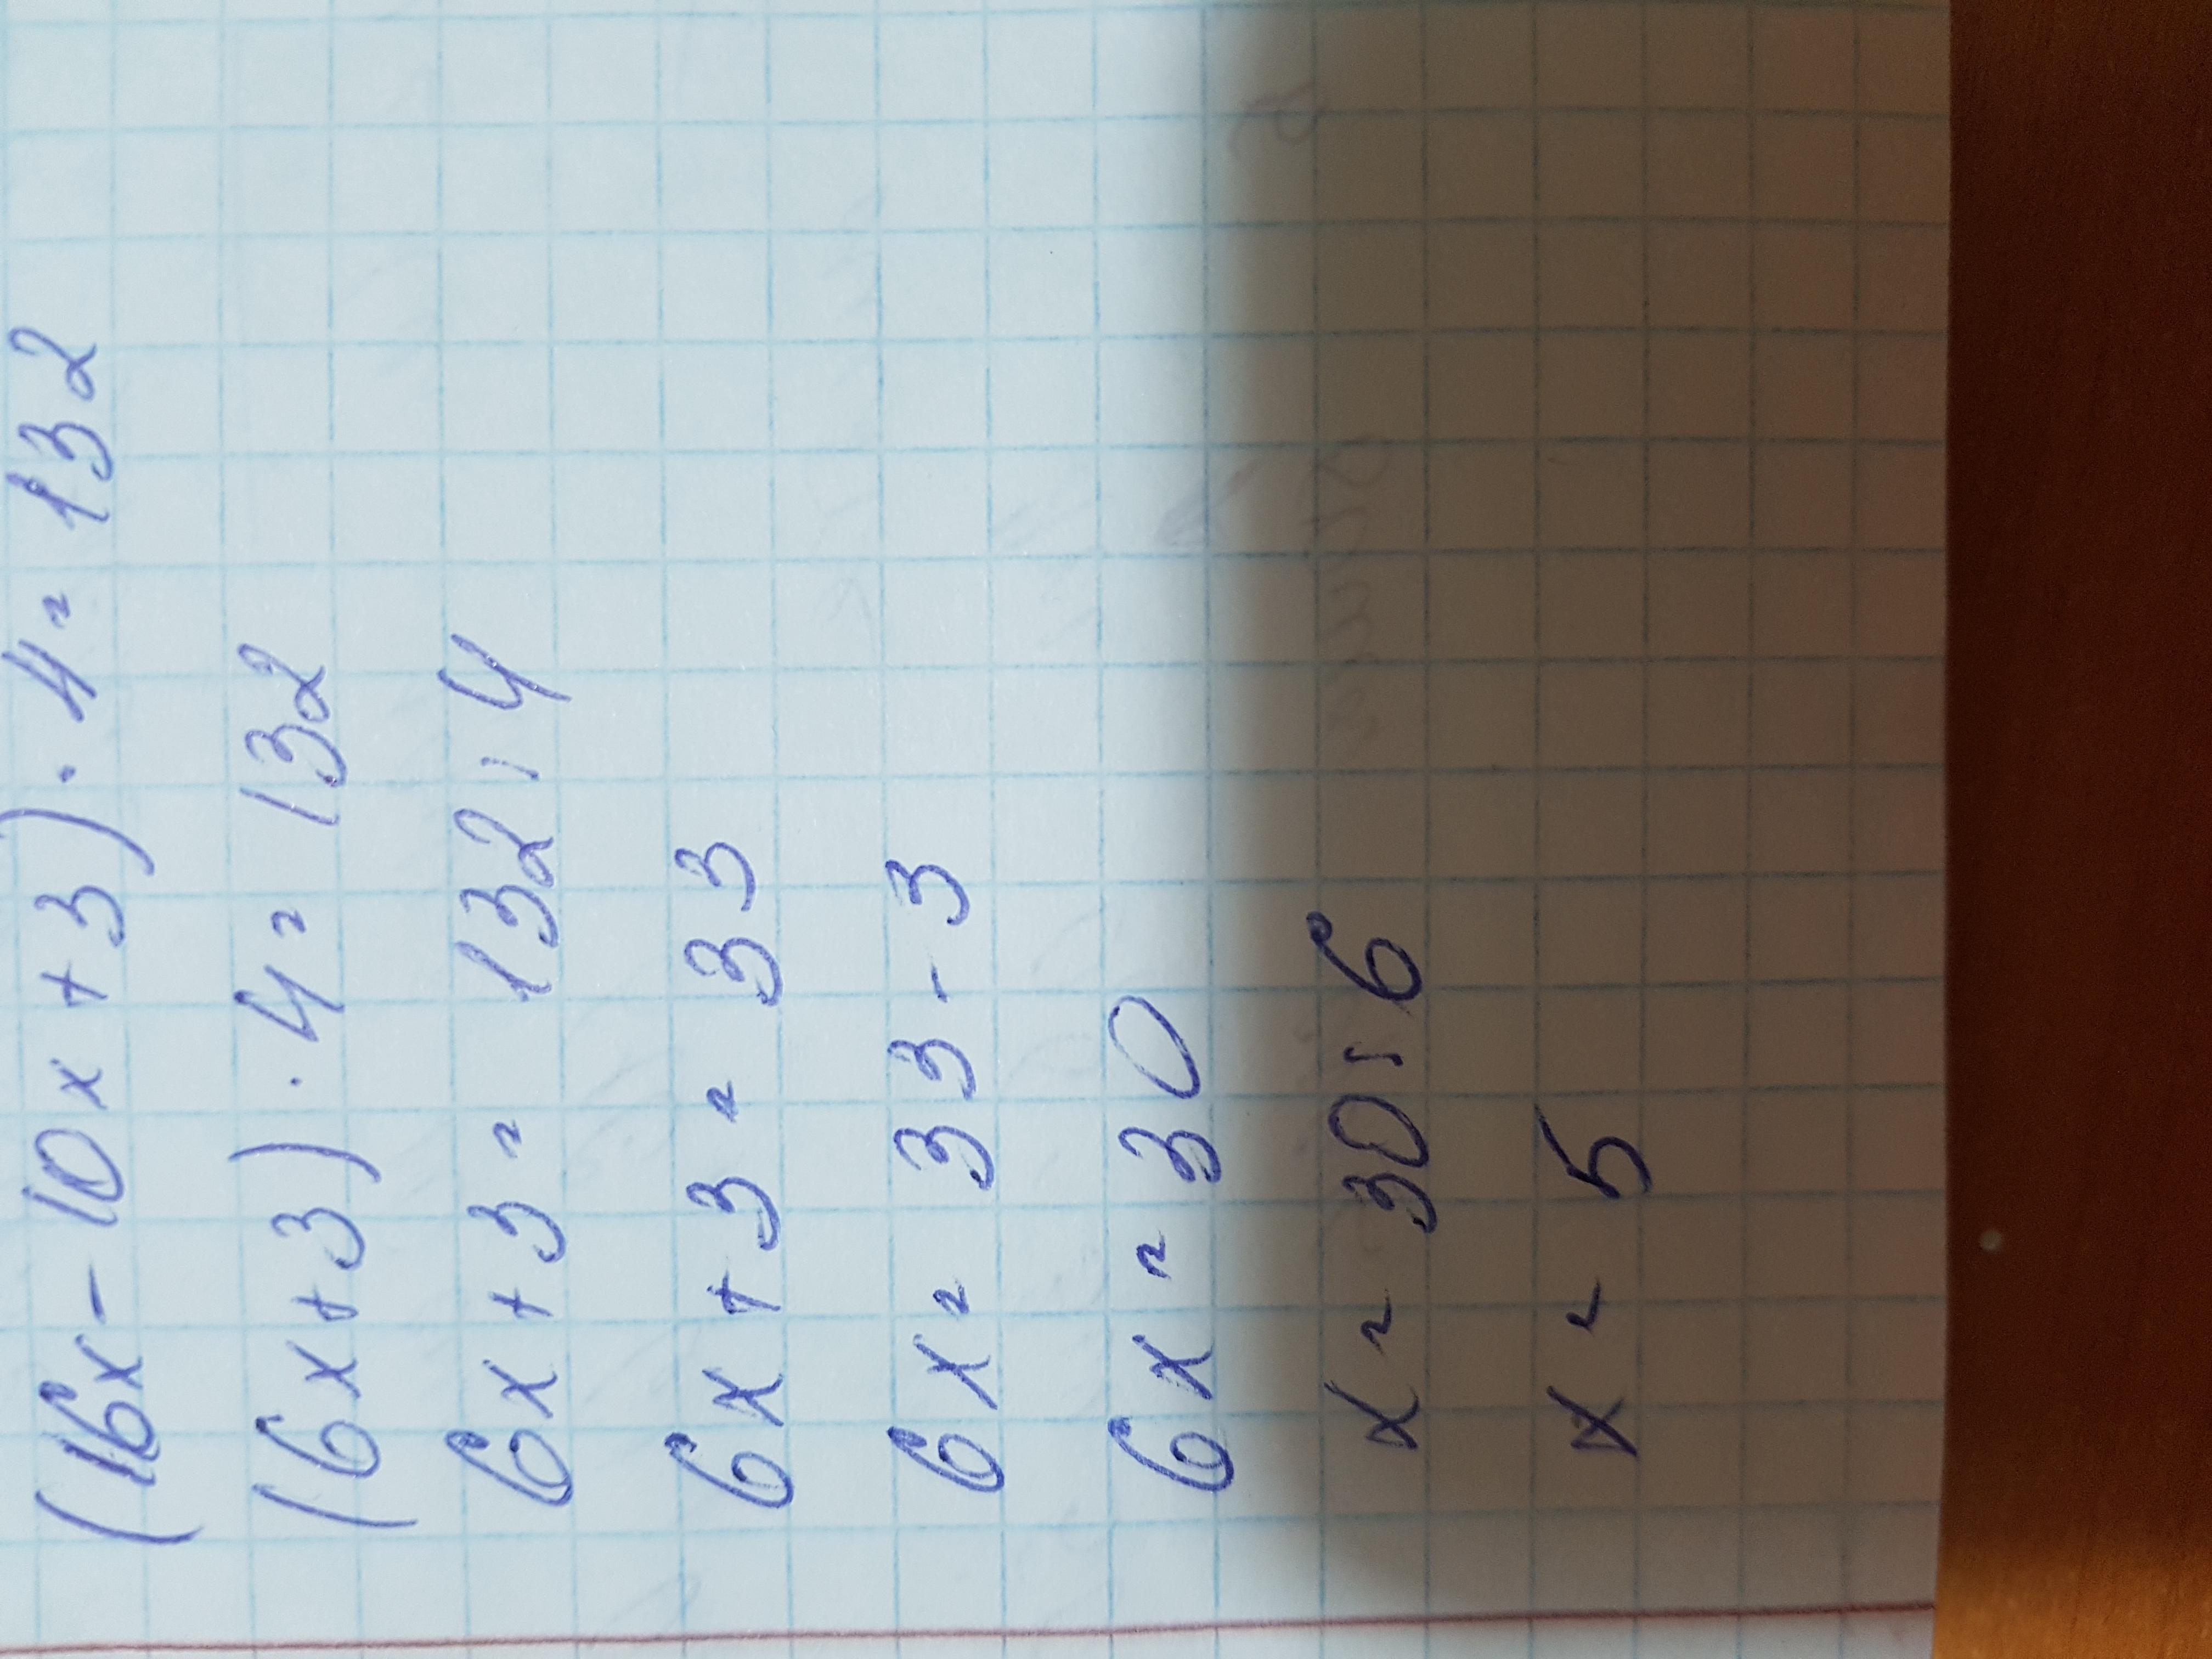 (16x - 10x + 3) · 4 = 132
(6x + 3) · 4 = 132
6x + 3 = 132 : 4
6x + 3 = 33
6x = 33 - 3
6x = 30
x = 30 : 6
x = 5